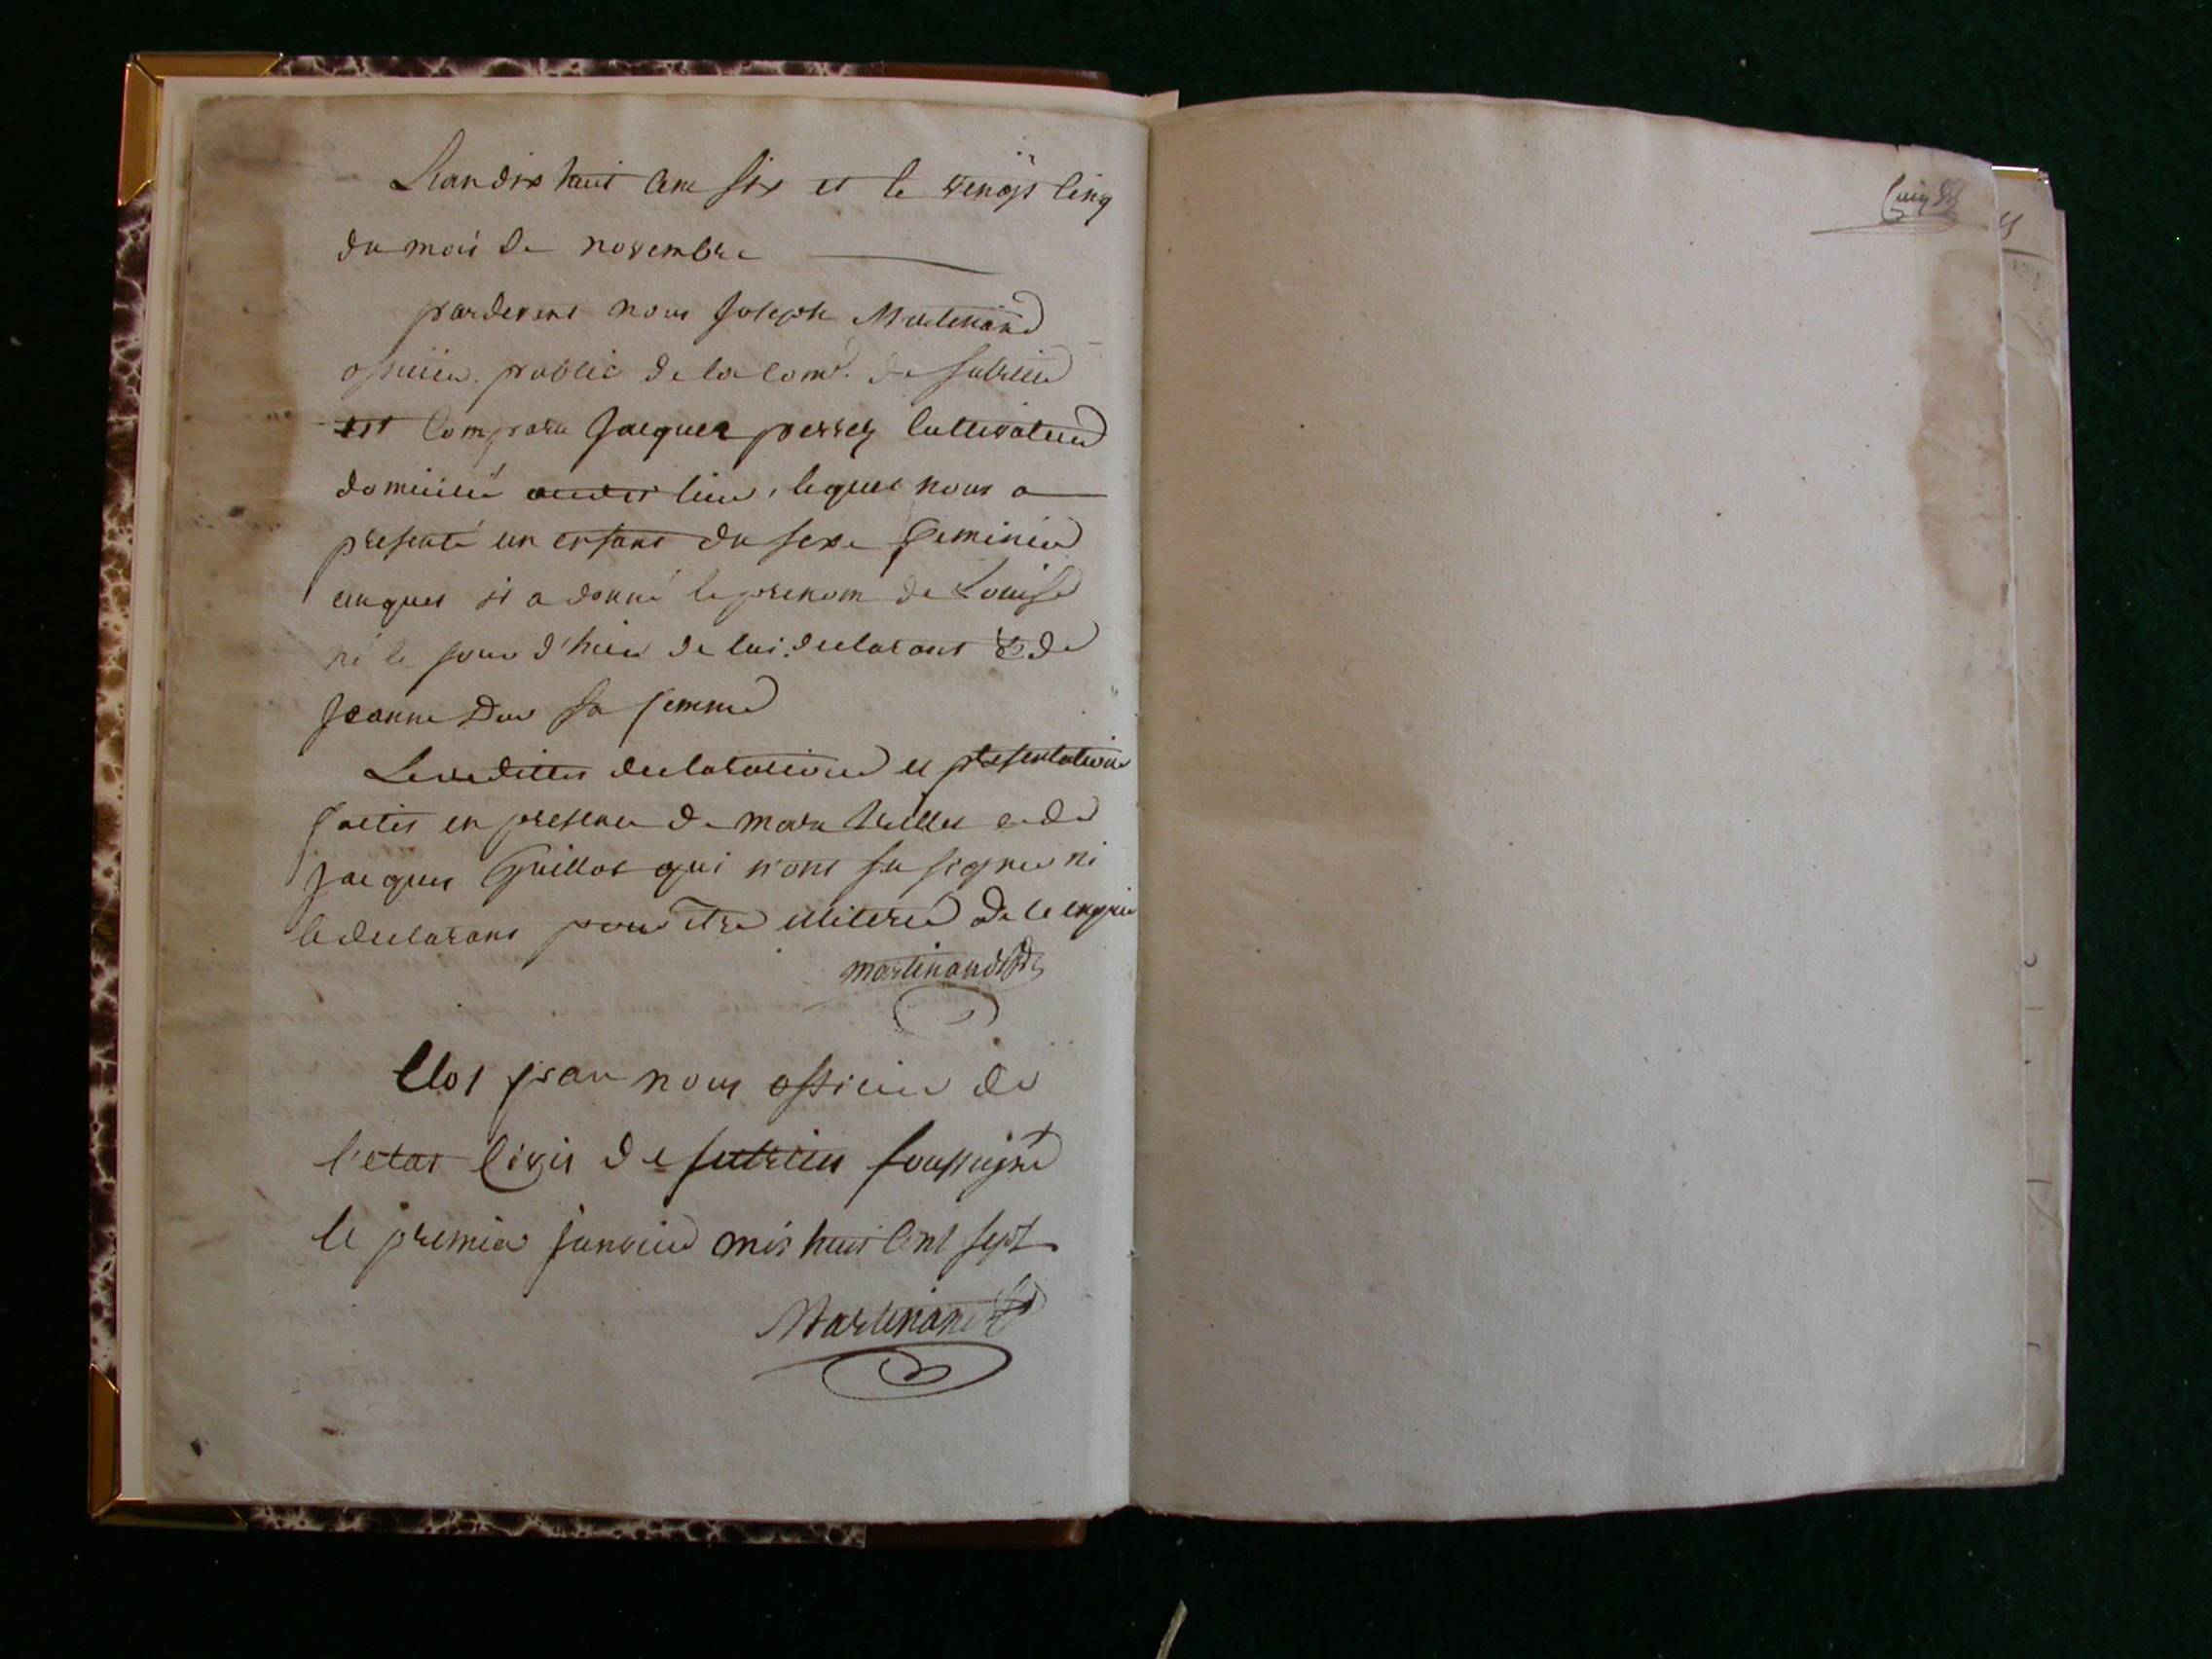 L'an dix huit cent six et le vengt cinq
du mois de novembre
pardevent nous Joseph Martinand
officier public de la com.^e de Sutrieu
est comparu Jacques perret cultivateur
domicilié audit lieu, lequel nous a
presenté un enfant du sexe feminin
auquel il a donné le prenom de Louise
né le jour d'hier de lui declarant & de
Jeanne sa femme
Lesdittes declaration et presentation
faites en presence de et de
Jacques Guillot qui n'ont su signer ni
le declarant pour être illiteré de ce enquis
Martinand
Clos par nous officier de
l'etat civil de Sutrieu soussigné
le premier janvier mil huit cent sept
Martinand